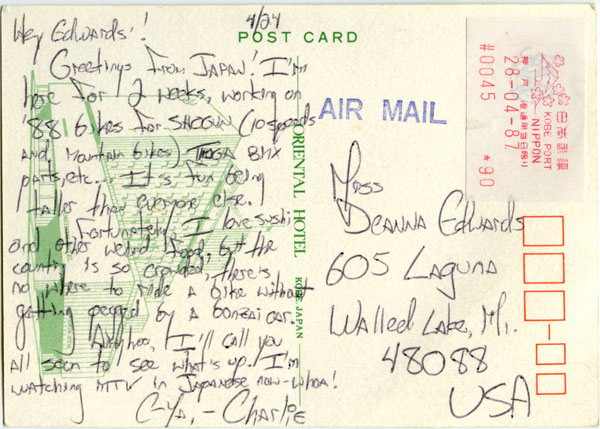 4/24
Hey Edwards'!
Greetings from JAPAN! I'm
here for 2 weeks, working on
'88 bikes for SHOGUN (10 speeds
and Mountain bikes) BMX
parts, etc. It's fun being
taller than everyone else.
Fortunately, I love sushi
and other weird food, but the
country is so crowded, there's
no where to ride a bike without
getting pegged by a bonzai car.
Anyhoo, I'll call you
all soon to see what's up. I'm
watching MTV in Japanese now-whoa!
C-Ya, - Charlie
POST CARD
AIR MAIL
ORIENTAL HOTEL KOBE, JAPAN
#0045 *90
28-04-87
神戸
NIPPON
KOBE PORT
日本郵便
Deanna Edwards
605 Laguna
Walled Lake, Mi.
48088
USA